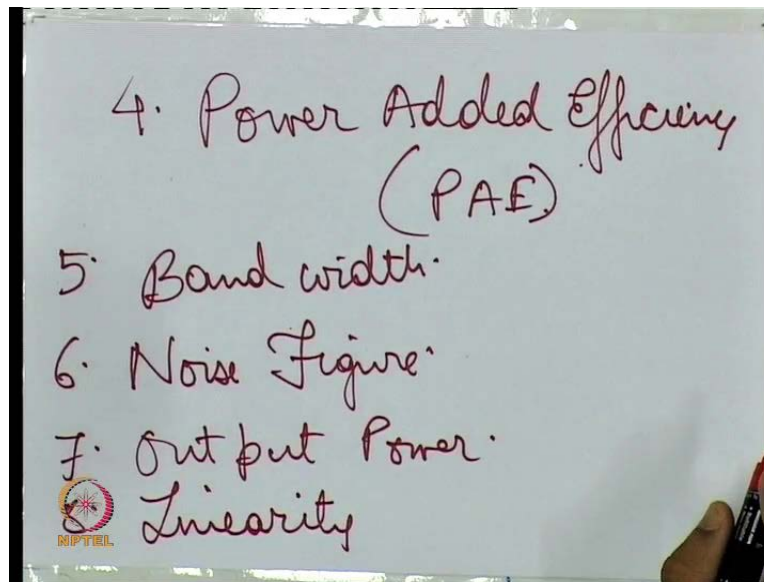 4. Power Added Efficiency
(PAE)
5. Band width.
6. Noise Figure.
7. Output Power.
8 Linearity
NPTEL